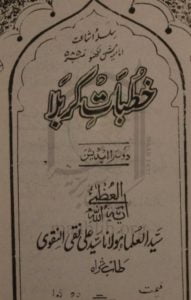 سلسلہ اشاعت
خطباتِ کربلا
دوسرا ایڈیشن
آیۃ اللہ العظمیٰ
سید العلماء مولانا سید علی نقی النقوی
طاب ثراہ
قیمت